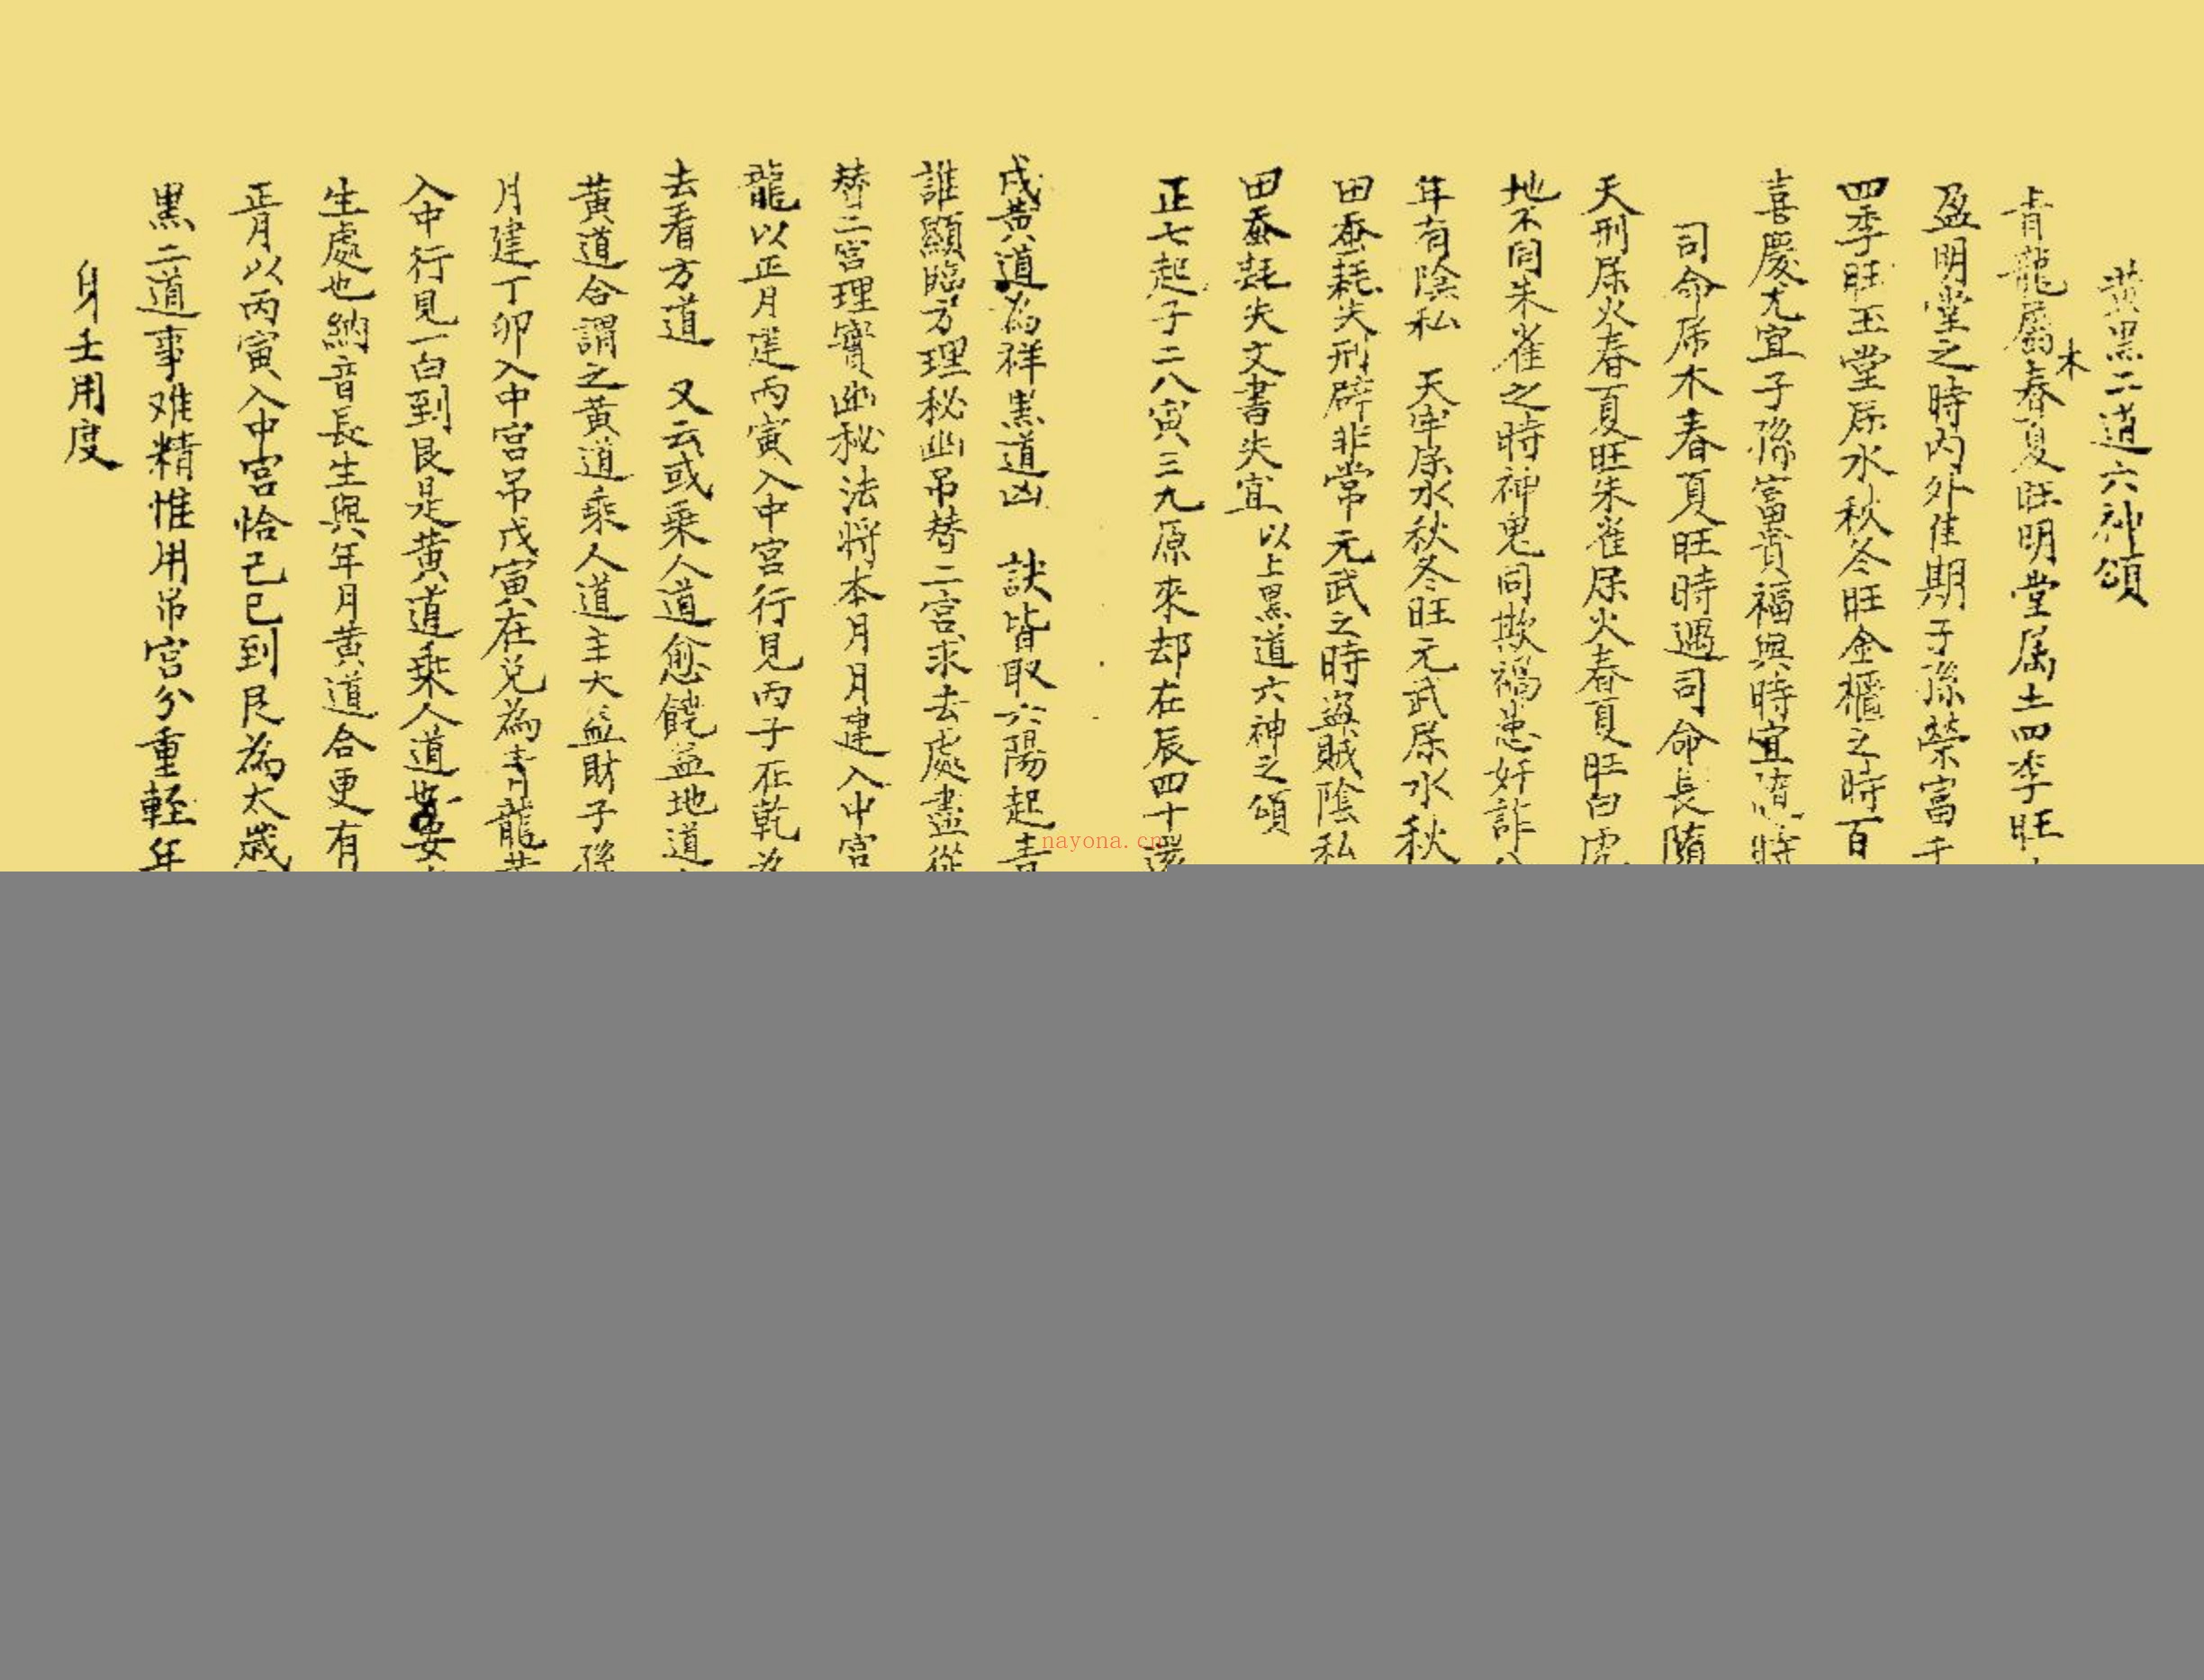 黄黑二道六神頌
青龍屬木春夏旺明堂属土四季旺
盈明堂之時内外佳期子孫榮富千
四季旺玉堂屬水秋冬旺金櫃之時百
喜慶尤宜子孫富貴福興時宜
司命屬木春夏旺時遇司命長隨
天刑屬火春夏旺朱雀屬火春夏旺白虎
地不同朱雀之時神鬼同欺禍患奸詐
年有陰私 天牢屬水秋冬旺元武屬水秋
田蚕耗失刑辟非常元武之時盗賊陰私
田蚕耗失文書失宜 以上黑道六神之頌
正七起子二八寅三九原來却在辰四十還
戌黄道為祥黑道凶 訣皆取六陽起青
誰顯臨方理秘幽吊替二宫求去處盡從
替二宫理實幽秘法將本月月建入中宫
龍以正月建丙寅入中宫行見丙子在乾為
去看方道 又云或乘人道愈饒益地道
黄道合謂之黄道乘人道主大益財子孫
月建丁卯入中宫吊戊寅在兌為青龍黄
入中行見一白到艮是黄道乘人道也要
生處也納音長生與年月黄道合更有
正月以丙寅入中宫恰己巳到艮為太歲
黑二道事难精惟用吊宫分重軽年
身壬用度
nayona.cn